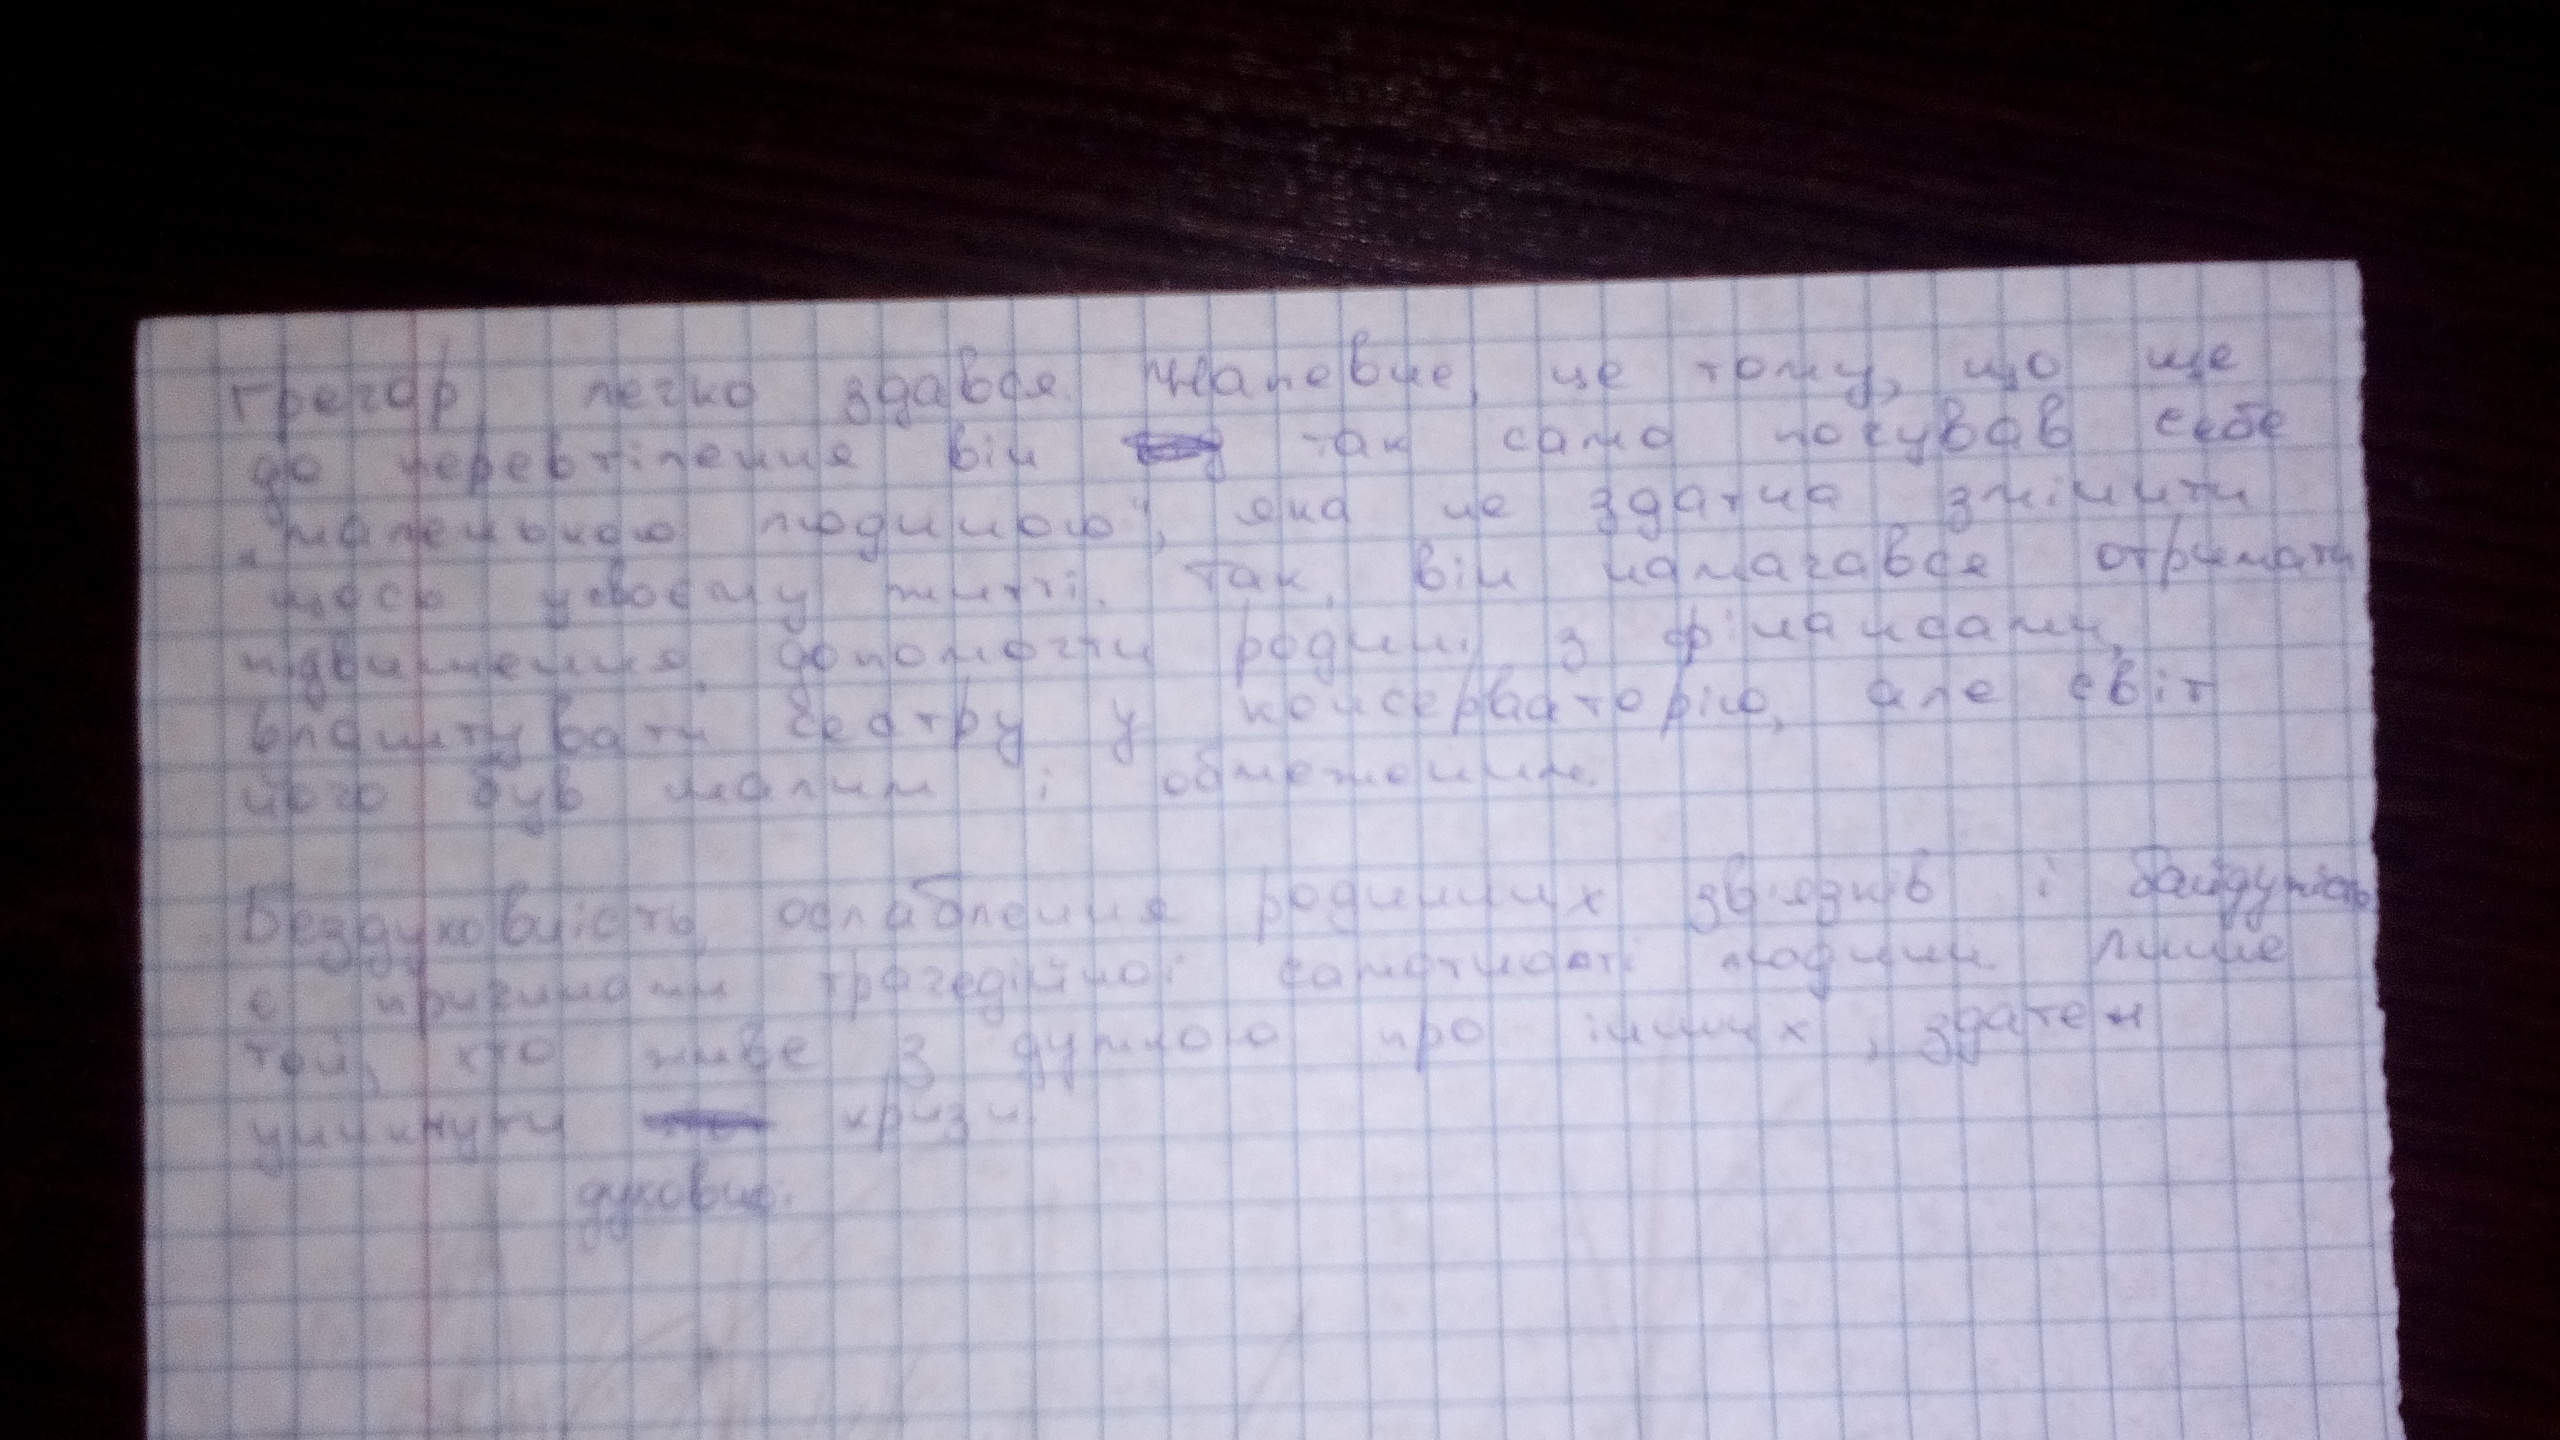 Грегор легко здався. Напевне, це тому, що ще
до перевтілення він так само почував себе
"маленькою людиною", яка не здатна змінити
щось у своєму житті. Так, він намагався отримати
підвищення, допомогти родині з фінансами,
влаштувати сестру у консерваторію, але світ
його був малим і обмеженим.
Бездуховність, ослаблення родинних зв'язків і байдужість
є причинами трагедійної самотності людини. Лише
той, хто живе з думкою про інших, здатен
уникнути кризи
духовно.